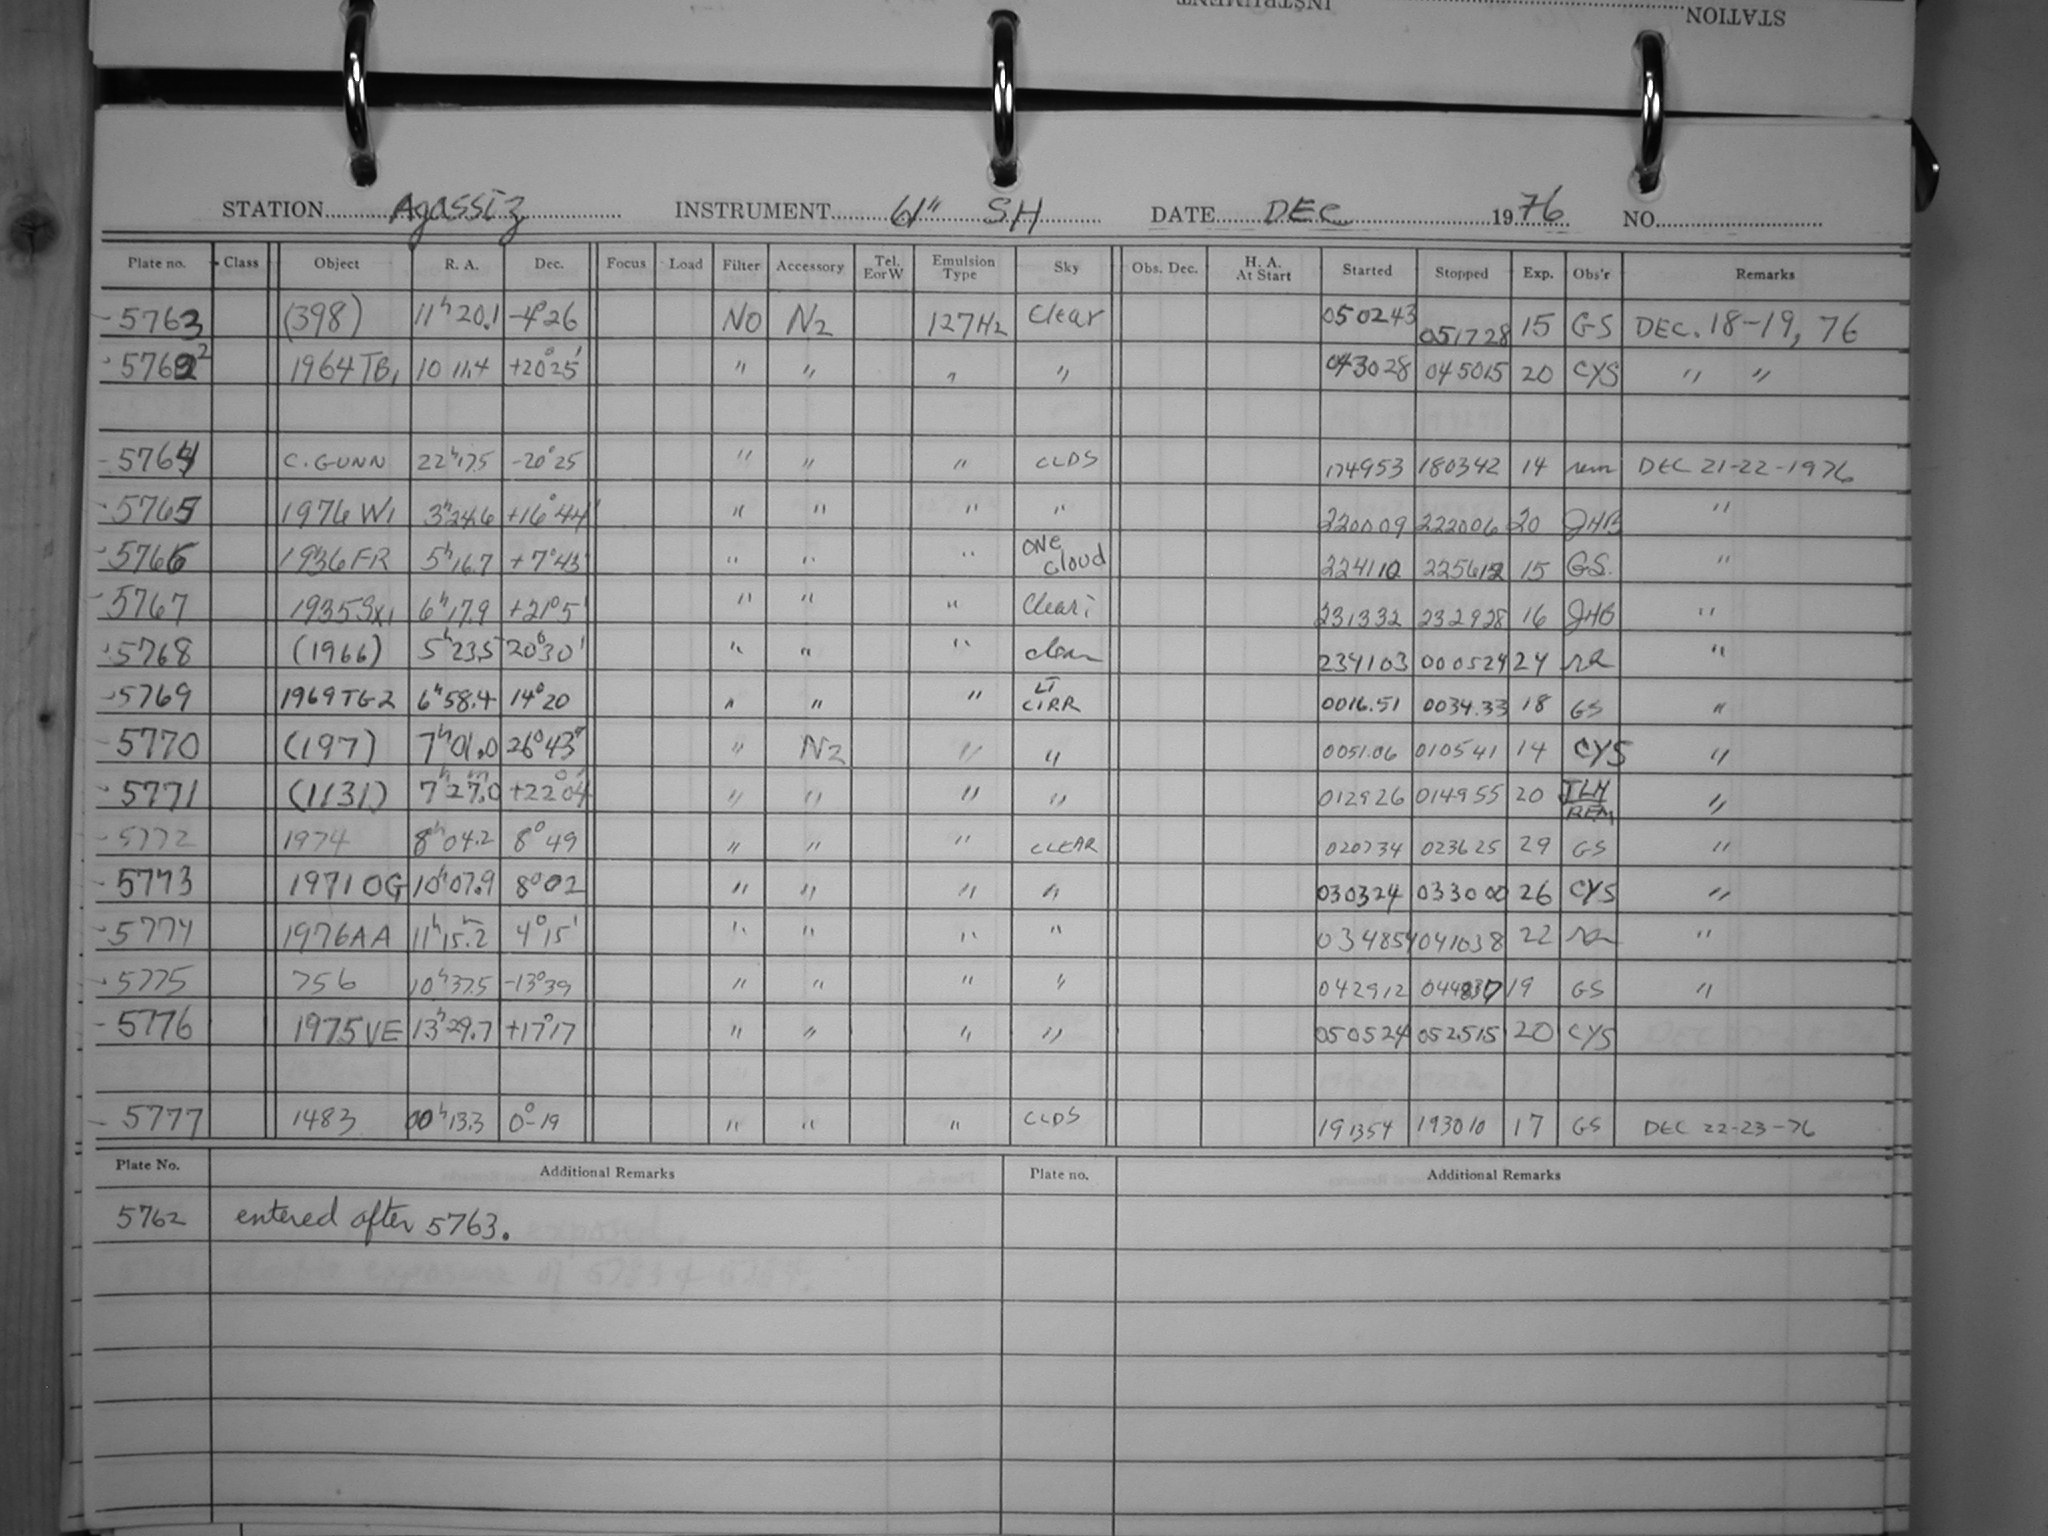 INSTRUMENT STATION
STATION Agassiz INSTRUMENT 61" SH DATE DEC 1976 NO.
Plate no. Class Object R. A. Dec. Focus Load Filter Accessory Tel. E or W Emulsion Type Sky Obs. Dec. H. A. At Start Started Stopped Exp. Obs'r Remarks
5763 (398) 11h 20.1 -4°26 NO N2 127H2 Clear 050243 051728 15 GS DEC. 18-19, 76
5762 1964TB1 10 11.4 +20°25' " " " " 043028 045015 20 CYS " "
5764 C. GUNN 22h17.5 -20°25 " " " CLDS 174953 180342 14 rem DEC 21-22-1976
5765 1976 W1 3h24.6 +16°44' " " " " 220009 222006 20 JHB "
5766 1936 FR 5h16.7 +7°43' " " " ONE Cloud 224110 225612 15 GS. "
5767 1935SX1 6h17.9 +21°5' " " " Clear 231332 232928 16 JHB "
5768 (1966) 5h23.5 20°30' " " " clear 234103 000524 24 "
5769 1969TG2 6h58.4 14°20 " " " LT CIRR 0016.51 0034.33 18 GS "
5770 (197) 7h01.0 26°43' " N2 " " 0051.06 010541 14 CYS "
5771 (1131) 7h27.0m +22°04' " " " " 012926 014955 20 JLM REM "
5772 1974 8h04.2 8°49 " " " CLEAR 020734 023625 29 GS "
5773 1971 OG 10h07.9 8°02 " " " " 030324 033000 26 CYS "
5774 1976AA 11h15.2 4°15' " " " " 034854 041038 22 "
5775 756 10h37.5 -13°39 " " " " 042912 19 GS "
5776 1975VE 13h29.7 +17°17 " " " " 050524 052515 20 CYS
5777 1483 00h13.3 0°-19 " " " CLDS 191354 193010 17 GS DEC 22-23-76
Plate No. Additional Remarks Plate no. Additional Remarks
5762 entered after 5763.